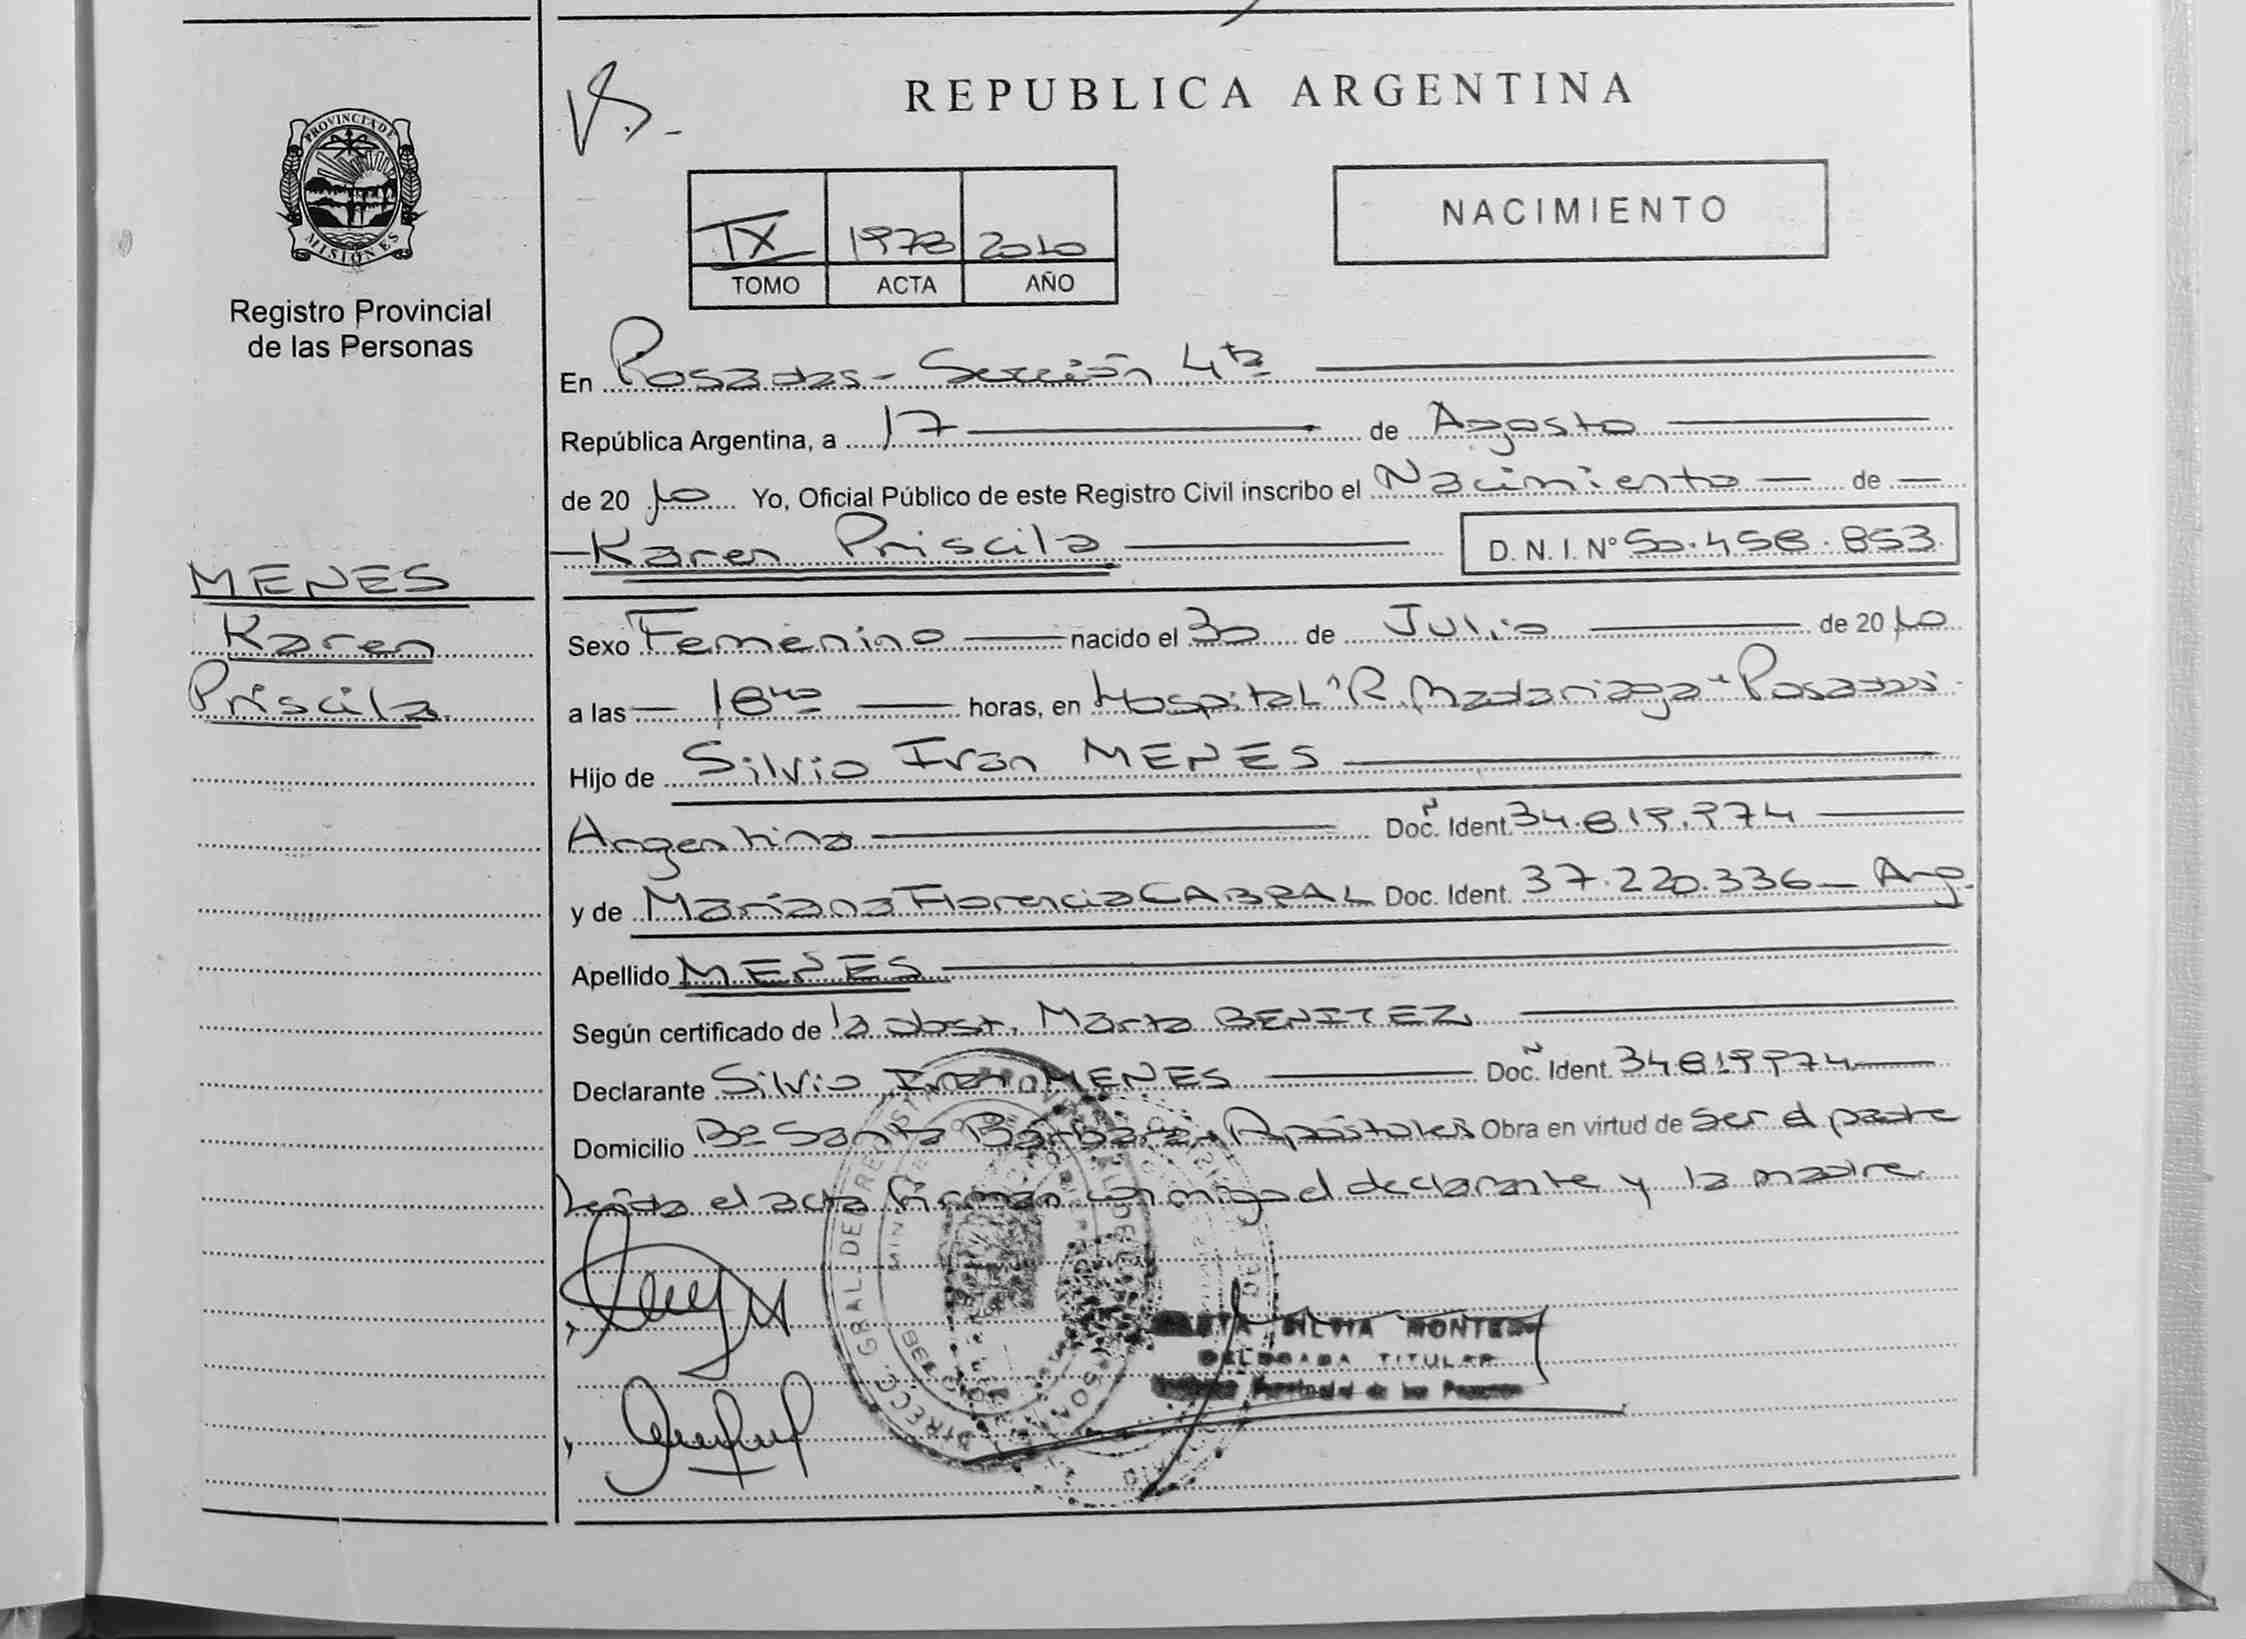 REPUBLICA ARGENTINA
PROVINCIA DE
MISIONES
Registro Provincial
de las Personas
IX 1978 2010
TOMO ACTA AÑO
NACIMIENTO
En Posadas - Sección 4ta
República Argentina, a 17 de Agosto
de 20 10 Yo, Oficial Público de este Registro Civil inscribo el Nacimiento de
Karen Priscila D. N. I. Nº 50.458.853
MENES
Karen
Priscila
Sexo Femenino nacido el 30 de Julio de 20 10
a las 18 horas, en Hospital "R. Madariaga" Posadas
Hijo de Silvio Ivan MENES
Argentino Doc. Ident. 34.819.974
y de Mariana Florencia CABRAL Doc. Ident. 37.220.336 - Arg.
Apellido MENES
Según certificado de la obst. Marta BENITEZ
Declarante Silvio Ivan MENES Doc. Ident. 34819974
Domicilio Bº Santa Bárbara - Apóstoles Obra en virtud de ser el padre
Leída el acta firman conmigo el declarante y la madre.
DIRECC. GRAL. DE REGISTRO
SILVIA MONTERO
DELEGADA TITULAR
Provincial de las Personas